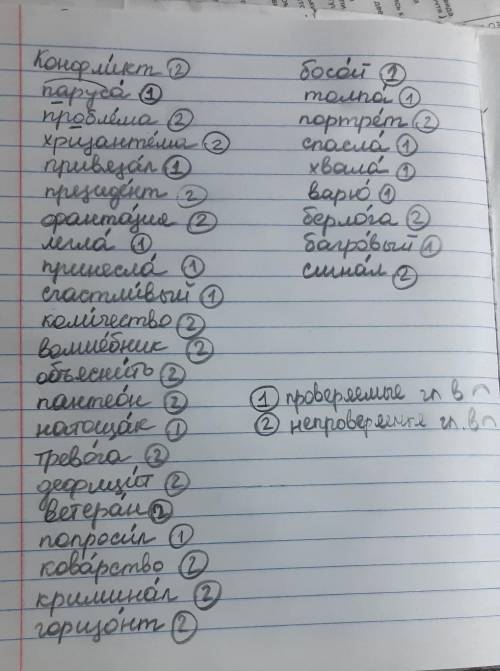 Конфли́кт ②
паруса́ ①
пробле́ма ②
хризанте́ма ②
привяза́л ①
президе́нт ②
фанта́зия ②
легла́ ①
принесла́ ①
счастли́вый ①
коли́чество ②
волше́бник ②
объясни́ть ②
пантео́н ②
натоща́к ①
трево́га ②
дефици́т ②
ветера́н ②
попроси́л ①
кова́рство ②
кримина́л ②
горизо́нт ②
босо́й ①
толпа́ ①
портре́т ②
спасла́ ①
хвала́ ①
варю́ ①
берло́га ②
багро́вый ①
сигна́л ②
① проверяемые гл. в
② непроверяемые гл. в